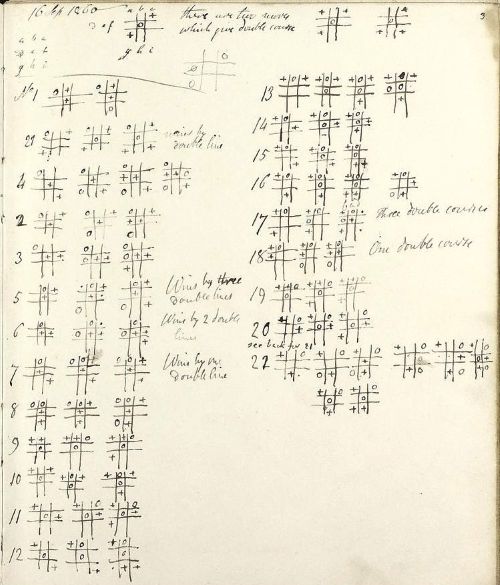 16 Sep 1860
a b c
d e f
g h i
a b c
d e f
g h i
there are two moves
which give double course
3
No 1
21
wins by
double line
4
2
3
5
Wins by three
double lines
6
Wins by 2 double
lines
7
Wins by one
double line
8
9
10
11
12
13
14
15
16
17
three double courses
18
One double course
19
20
see back for 21
22